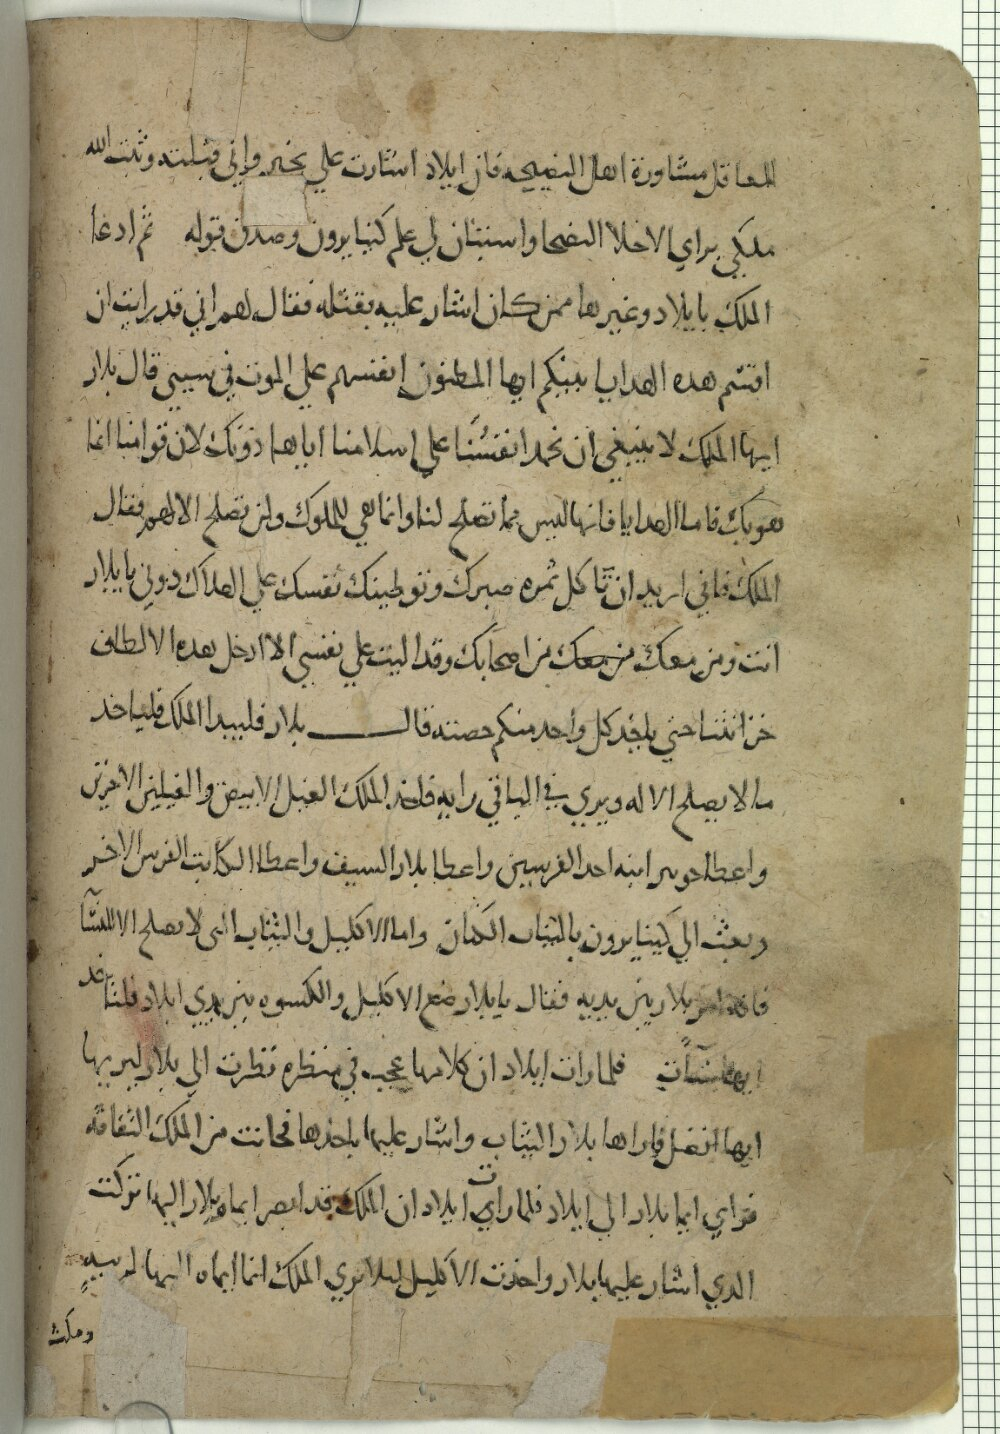 للعاقل مشاورة اهل النصيحه فان ايلاد اشارت علي بخير واني قبلته وثبت الله
ملكي براي الاخلا النصحا واستبان لي علم كنبايرون وصدق قوله ثم ادعا
الملك بايلاد وغيرها ممن كان اشار عليه بقتله فقال لهم اني قد رايت ان
اقسم هده الهدايا بينكم ايها المطنون انفسهم علي الموت في سببي قال بلار
ايها الملك لا ينبغي ان نحمد انفسنا علي اسلامنا اياها دونك لان قوامنا انما
هو بك فاما الهدايا فانها ليس مما تصلح لنا وانما هي للملوك ولن تصلح الا لهم فقال
الملك فاني اريد ان تاكل ثمره صبرك وتوطينك نفسك علي الهلاك دوني يا بلار
انت ومن معك من معك من اصحابك وقد اليت علي نفسي الا ادخل هده الالطاف
خزانتنا حتي ياخد كل واحد منكم حصته قال بلار فليبدا الملك فلياخد
ما لا يصلح الا له ويري في الباقي رايه فاخد الملك الفيل الابيض والفيلين الاخرين
واعطا جوير ابنه احد الفرسين واعطا بلار السيف واعطا الكاتب الفرس الاخر
وبعث الي كينايرون بالثياب الكتان واما الاكليل والثياب التي لا تصلح الا للنسا
بلار بين يديه فقال يا بلار ضع الاكليل والكسوه بين يدي ايلاد فلتاخد
ايها شات فلما رات ايلاد ان كلاهما عجب في منظره نظرت الي بلار ليريها
ايها افضل فاراها بلار الثياب واشار عليها باخدها فحانت من الملك التفاته
فراي ايما بلار الي ايلاد فلما رات ايلاد ان الملك قد ابصر ايما بلار اليها تركت
الدي اشار عليها بلار واخدت الاكليل ليلا يري الملك انما ايماه اليها لريبه
ومكث